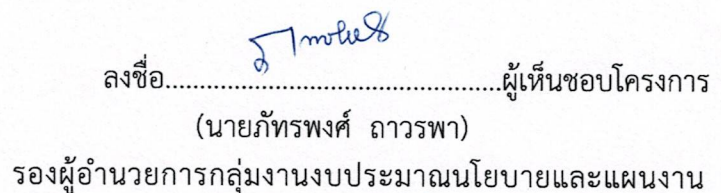 ลงชื่อ............................................ผู้เห็นชอบโครงการ
(นายภัทรพงศ์ ถาวรพา)
รองผู้อำนวยการกลุ่มงานงบประมาณนโยบายและแผนงาน